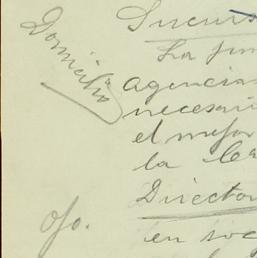 Domicilio
Sucurs
La jun
agencias
necesari
el mejor
la Ca
Director
ojo.
en soc